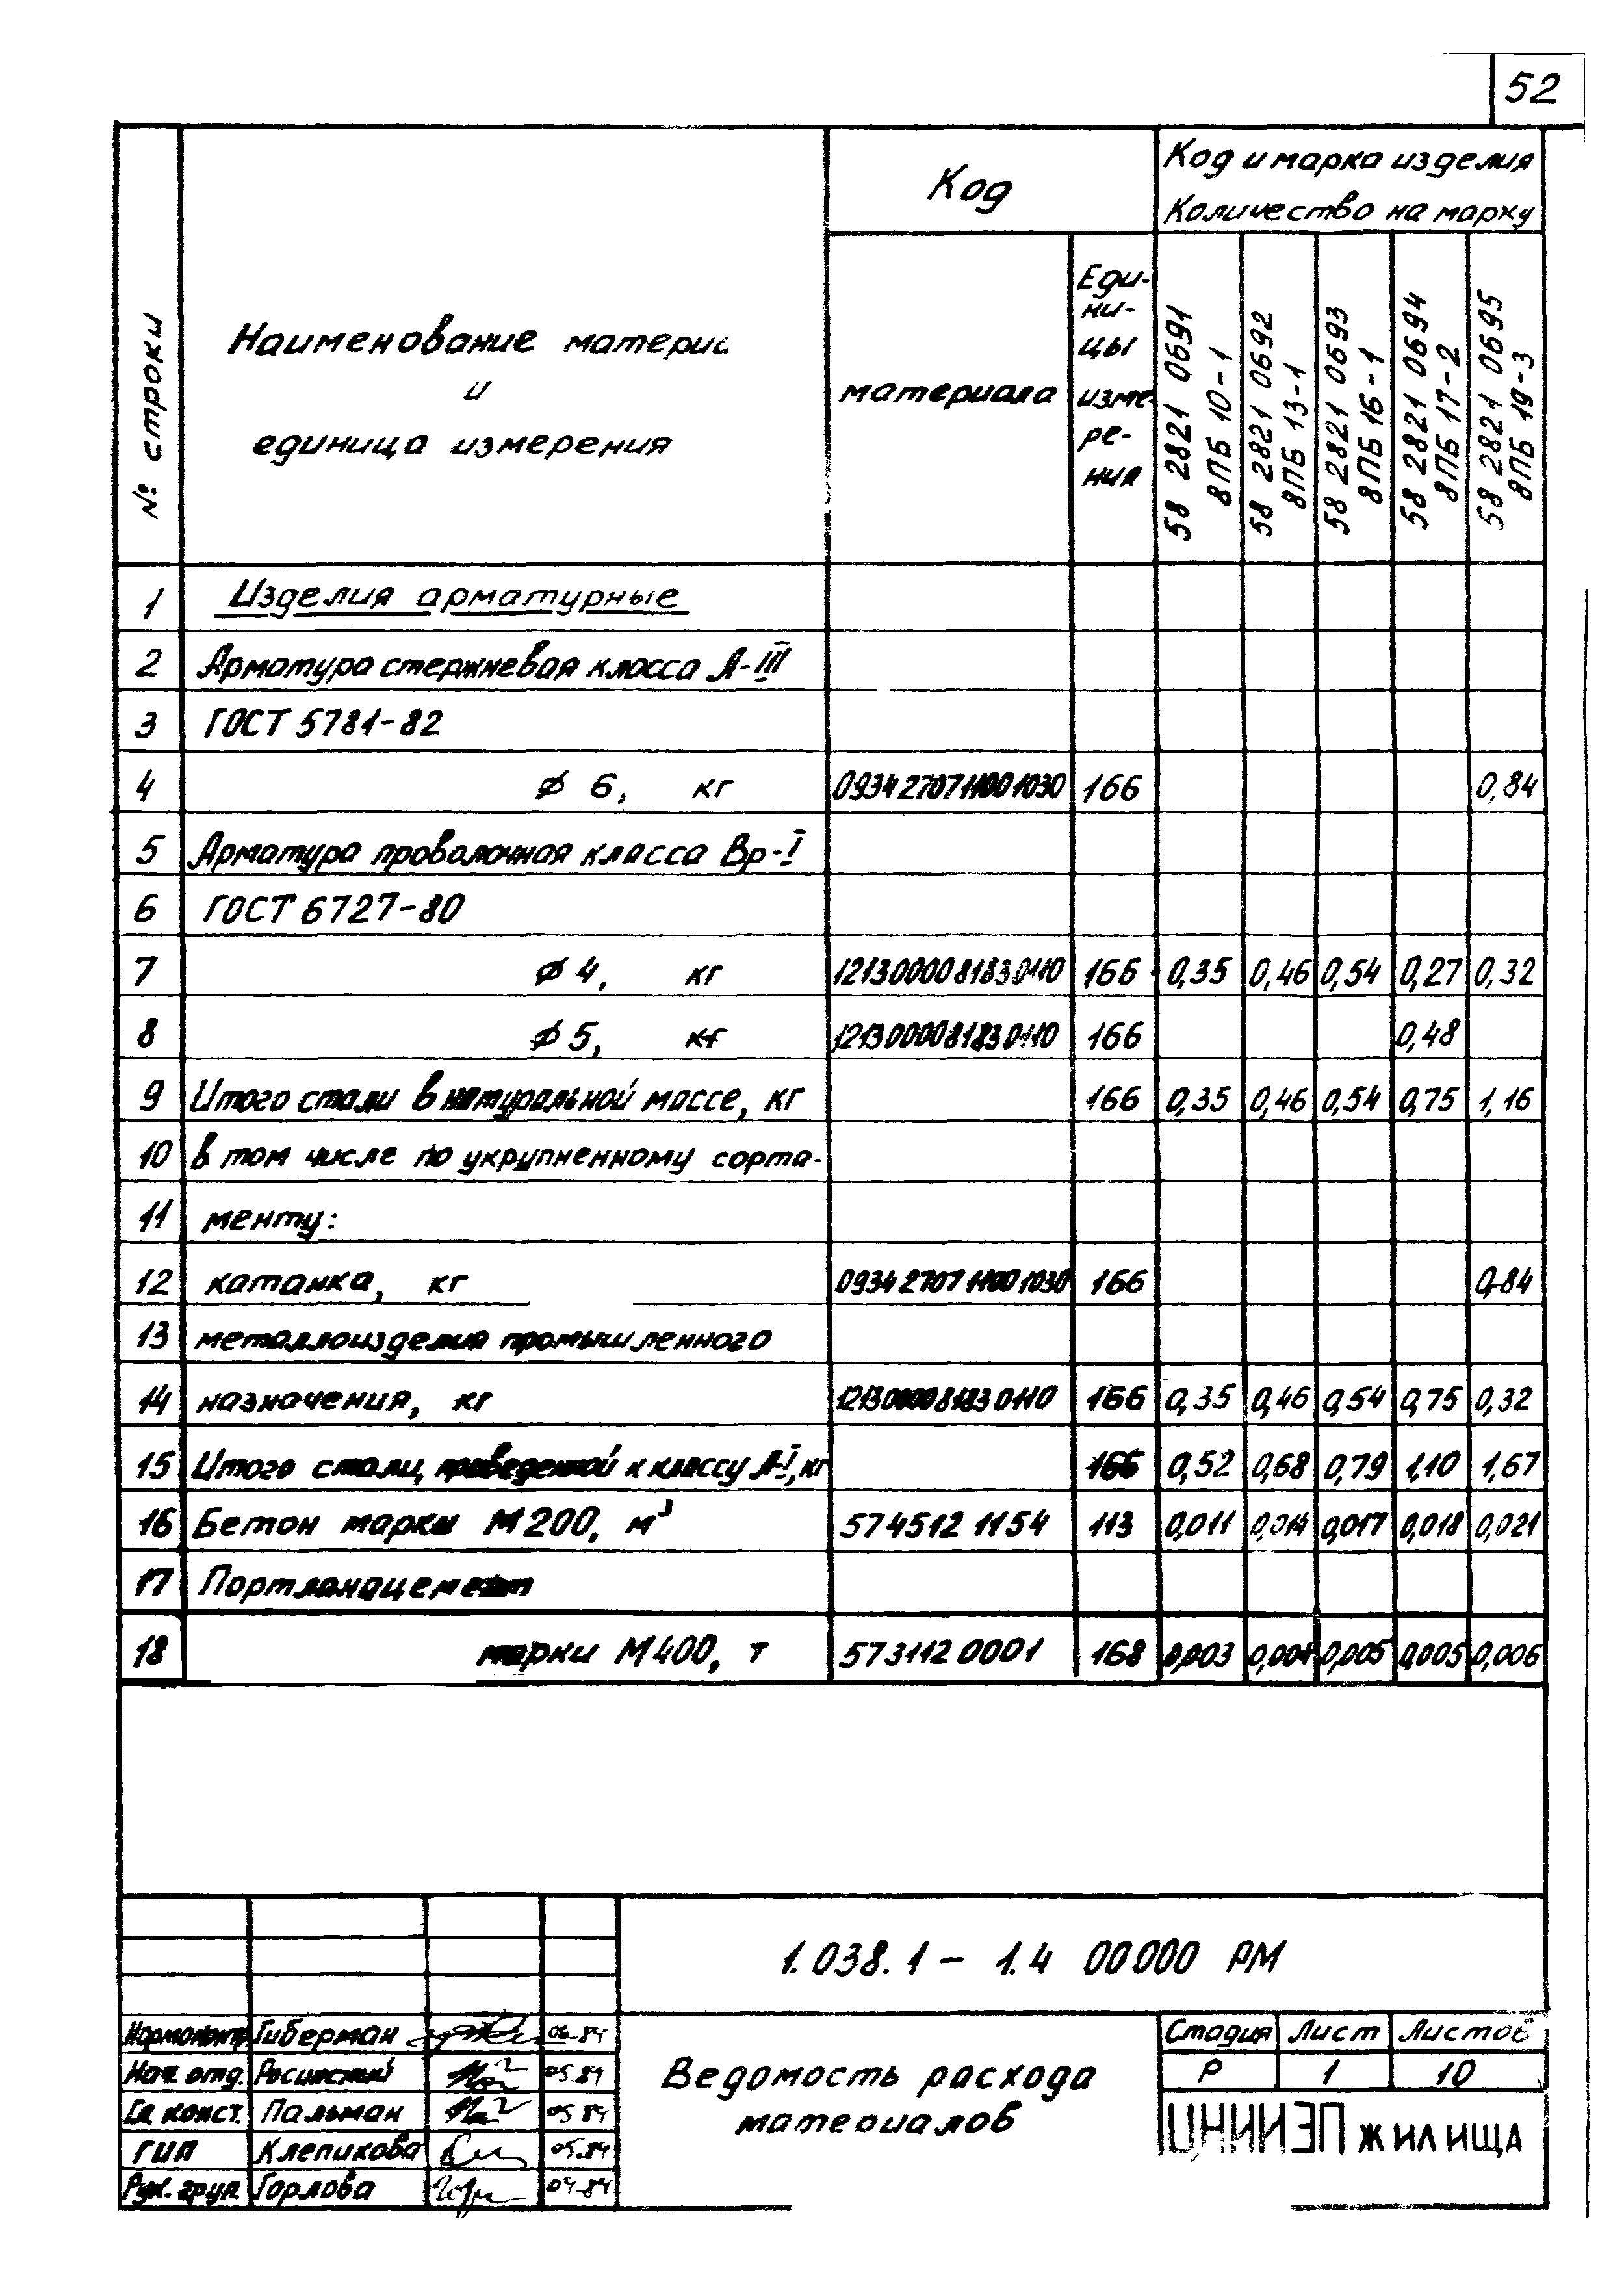 52
№ строки
Наименование материа
и
единица измерения
Код
материала
Еди-
ни-
цы
изме-
ре-
ния
Код и марка изделия
Количество на марку
58 2821 0691
8ПБ 10-1
58 2821 0692
8ПБ 13-1
58 2821 0693
8ПБ 16-1
58 2821 0694
8ПБ 17-2
58 2821 0695
8ПБ 19-3
1 Изделия арматурные
2 Арматура стержневая класса А-III
3 ГОСТ 5781-82
4 ø 6, кг 0934270711001030 166 0,84
5 Арматура проволочная класса Вр-I
6 ГОСТ 6727-80
7 ø 4, кг 1213000081830110 166 0,35 0,46 0,54 0,27 0,32
8 ø 5, кг 1213000081830110 166 0,48
9 Итого стали в натуральной массе, кг 166 0,35 0,46 0,54 0,75 1,16
10 в том числе по укрупненному сорта-
11 менту:
12 катанка, кг 0934270711001030 166 0,84
13 металлоизделия промышленного
14 назначения, кг 1213000081830110 166 0,35 0,46 0,54 0,75 0,32
15 Итого стали, приведенной к классу А-I, кг 166 0,52 0,68 0,79 1,10 1,67
16 Бетон марки М200, м³ 574512 1154 113 0,011 0,014 0,017 0,018 0,021
17 Портландцемент
18 марки М400, т 573112 0001 168 0,003 0,004 0,005 0,005 0,006
1.038.1 - 1.4 00000 РМ
Нормоконтр. Гиберман 06.84
Нач. отд. 05.84
Гл. конст. Пальман 05.84
ГИП Клепикова 05.84
Рук. груп. Горлова 04.84
Ведомость расхода
материалов
Стадия Лист Листов
Р 1 10
ЦНИИЭП жилища